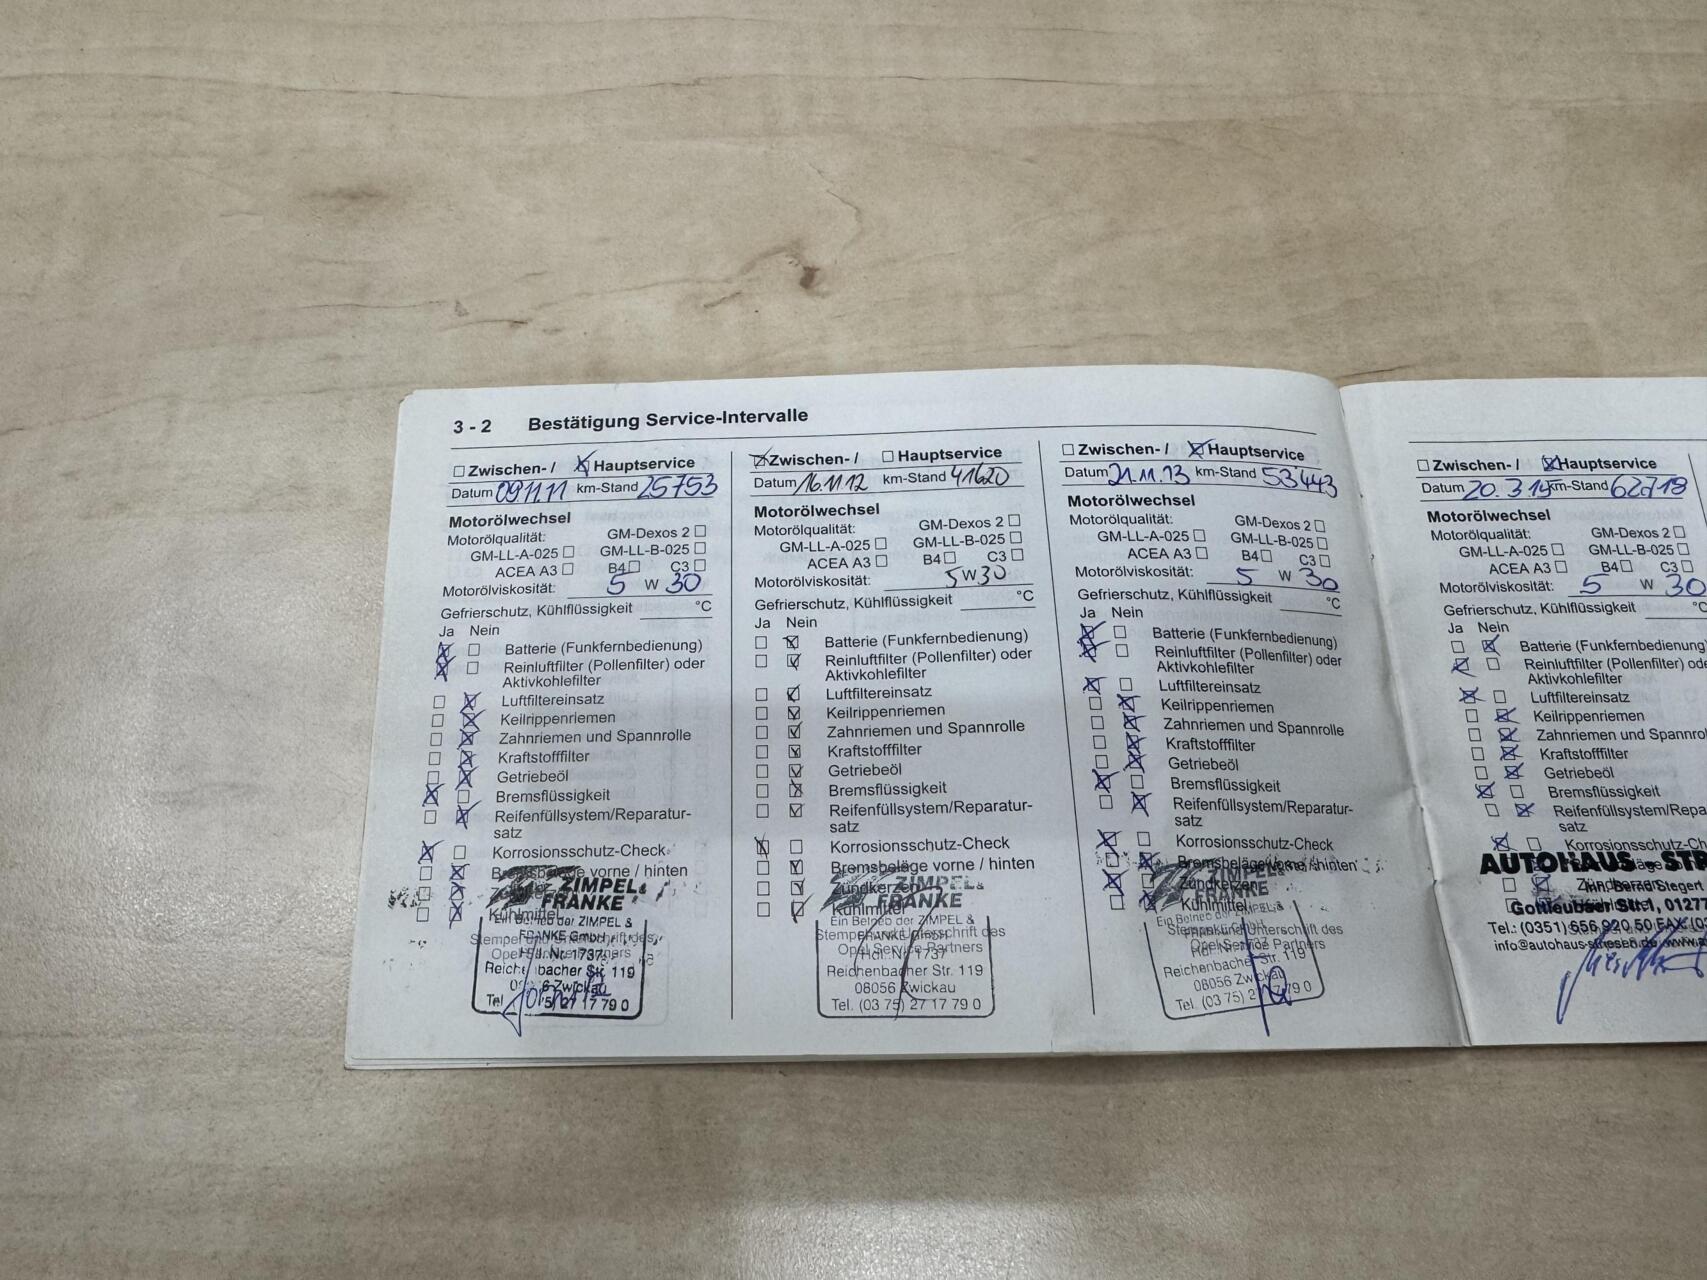 3 - 2 Bestätigung Service-Intervalle
Zwischen- / Hauptservice
Datum 09.11.11 km-Stand 25753
Motorölwechsel
Motorölqualität: GM-Dexos 2
GM-LL-A-025 GM-LL-B-025
ACEA A3 B4 C3
Motorölviskosität: 5 W 30
Gefrierschutz, Kühlflüssigkeit °C
Ja Nein
Batterie (Funkfernbedienung)
Reinluftfilter (Pollenfilter) oder
Aktivkohlefilter
Luftfiltereinsatz
Keilrippenriemen
Zahnriemen und Spannrolle
Kraftstofffilter
Getriebeöl
Bremsflüssigkeit
Reifenfüllsystem/Reparatur-
satz
Korrosionsschutz-Check
Bremsbeläge vorne / hinten
ZIMPEL &
FRANKE
Kühlmittel
Ein Betrieb der ZIMPEL &
FRANKE GmbH
Hdl. Nr. 1737
Reichenbacher Str. 119
Zwickau
Tel 27 17 79 0
Zwischen- / Hauptservice
Datum 16.11.12 km-Stand 41620
Motorölwechsel
Motorölqualität: GM-Dexos 2
GM-LL-A-025 GM-LL-B-025
ACEA A3 B4 C3
Motorölviskosität: 5W30
Gefrierschutz, Kühlflüssigkeit °C
Ja Nein
Batterie (Funkfernbedienung)
Reinluftfilter (Pollenfilter) oder
Aktivkohlefilter
Luftfiltereinsatz
Keilrippenriemen
Zahnriemen und Spannrolle
Kraftstofffilter
Getriebeöl
Bremsflüssigkeit
Reifenfüllsystem/Reparatur-
satz
Korrosionsschutz-Check
Bremsbeläge vorne / hinten
Zündkerzen
ZIMPEL &
FRANKE
Kühlmittel
Ein Betrieb der ZIMPEL &
Stempel und Unterschrift des
Opel Service-Partners
Hdl. Nr. 1737
Reichenbacher Str. 119
08056 Zwickau
Tel. (03 75) 27 17 79 0
Zwischen- / Hauptservice
Datum 21.11.13 km-Stand 53443
Motorölwechsel
Motorölqualität: GM-Dexos 2
GM-LL-A-025 GM-LL-B-025
ACEA A3 B4 C3
Motorölviskosität: 5 W 30
Gefrierschutz, Kühlflüssigkeit °C
Ja Nein
Batterie (Funkfernbedienung)
Reinluftfilter (Pollenfilter) oder
Aktivkohlefilter
Luftfiltereinsatz
Keilrippenriemen
Zahnriemen und Spannrolle
Kraftstofffilter
Getriebeöl
Bremsflüssigkeit
Reifenfüllsystem/Reparatur-
satz
Korrosionsschutz-Check
Bremsbeläge vorne / hinten
Zündkerzen
ZIMPEL &
FRANKE
Kühlmittel
Ein Betrieb der ZIMPEL &
Unterschrift des
Opel Service Partners
Reichenbacher Str. 119
08056 Zwickau
Tel. (03 75) 2 79 0
Zwischen- / Hauptservice
Datum 20.3.15 km-Stand 62718
Motorölwechsel
Motorölqualität: GM-Dexos 2
GM-LL-A-025 GM-LL-B-025
ACEA A3 B4 C3
Motorölviskosität: 5 W 30
Gefrierschutz, Kühlflüssigkeit °C
Ja Nein
Batterie (Funkfernbedienung
Reinluftfilter (Pollenfilter) ode
Aktivkohlefilter
Luftfiltereinsatz
Keilrippenriemen
Zahnriemen und Spannro
Kraftstofffilter
Getriebeöl
Bremsflüssigkeit
Reifenfüllsystem/Repara
satz
Korrosionsschutz-Ch
AUTOHAUS STR
Inh. Bernd Siegert
Gottleubaer Str. 1, 01277
Tel.: (0351) 656 920 50 FAX (0
info@autohaus-striesen.de